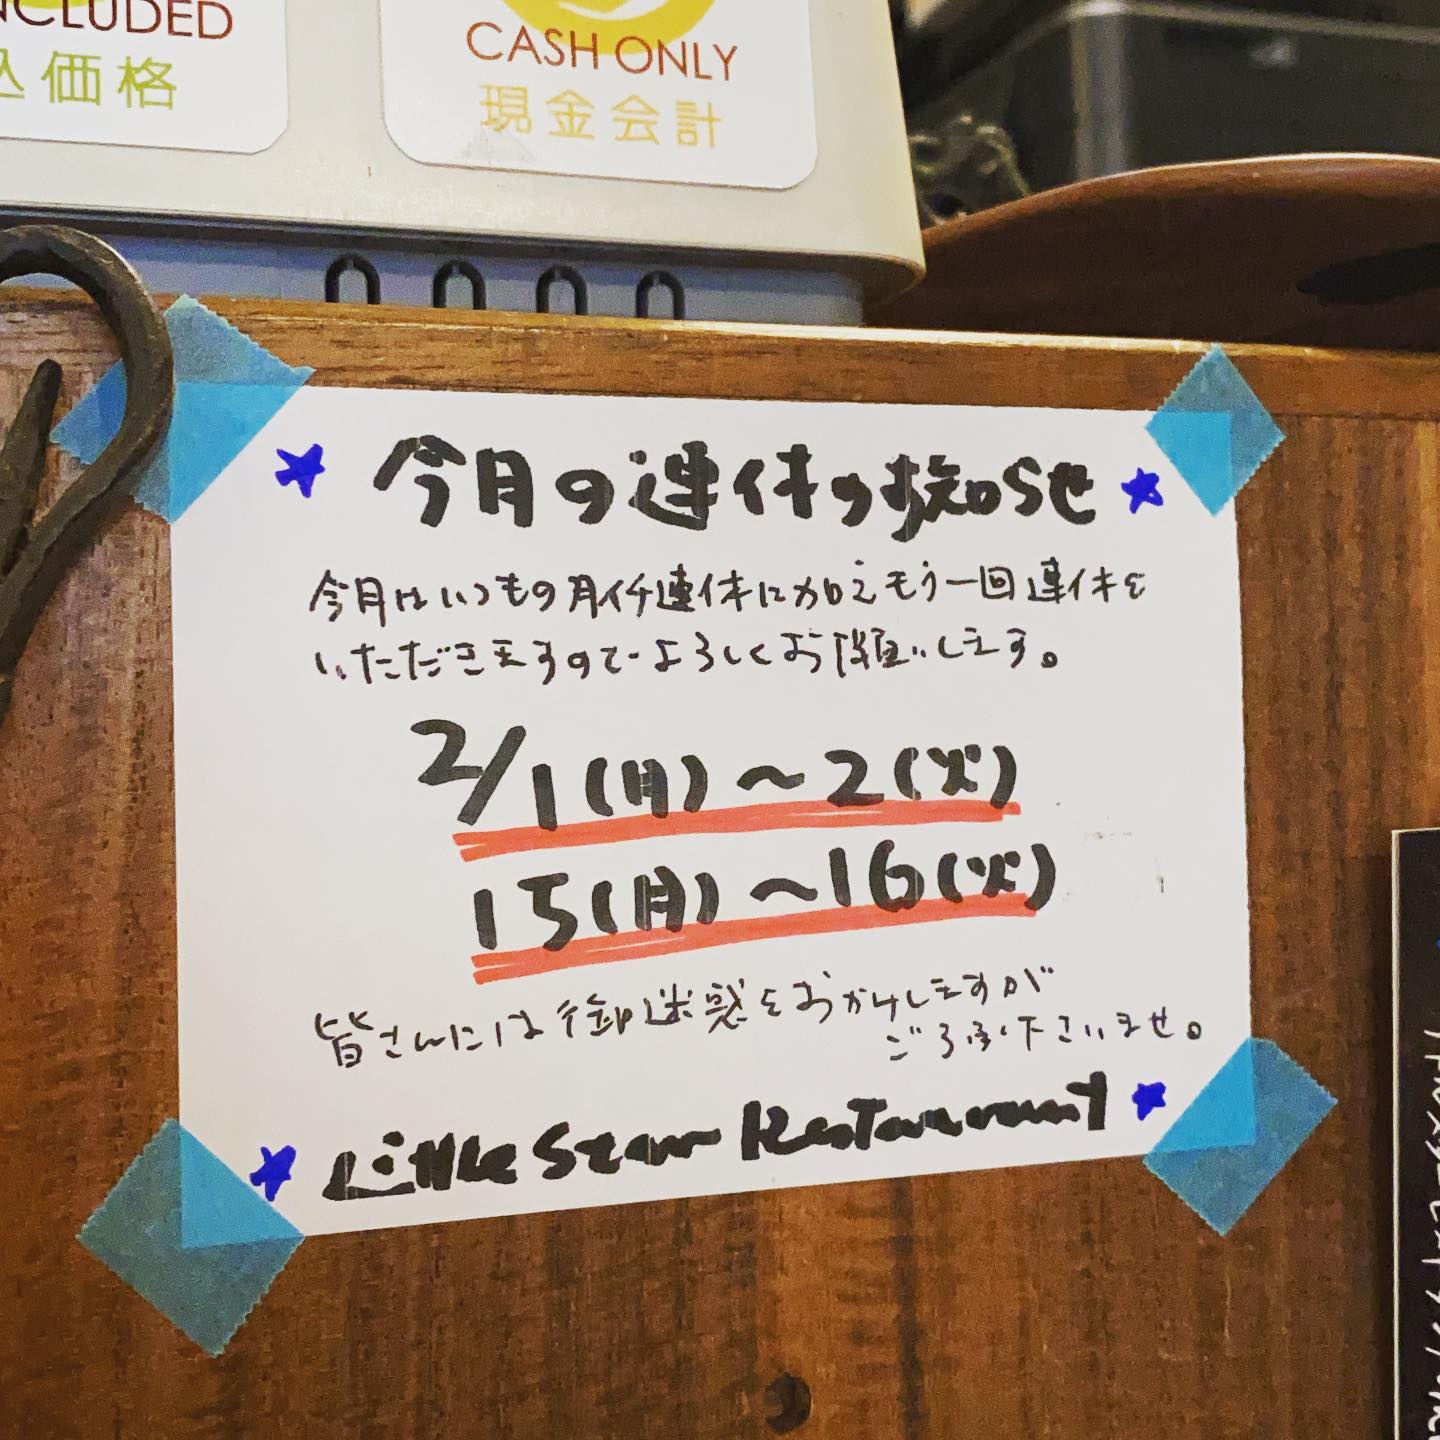 NCLUDED
込価格
CASH ONLY
現金会計
今月の連休のお知らせ
今月はいつもの月イチ連休に加えもう一回連休を
いただきますのでよろしくお願いします。
2/1(月)～2(火)
15(月)～16(火)
皆さんには御迷惑をおかけしますが
ご了承下さいませ。
Little Star Restaurant